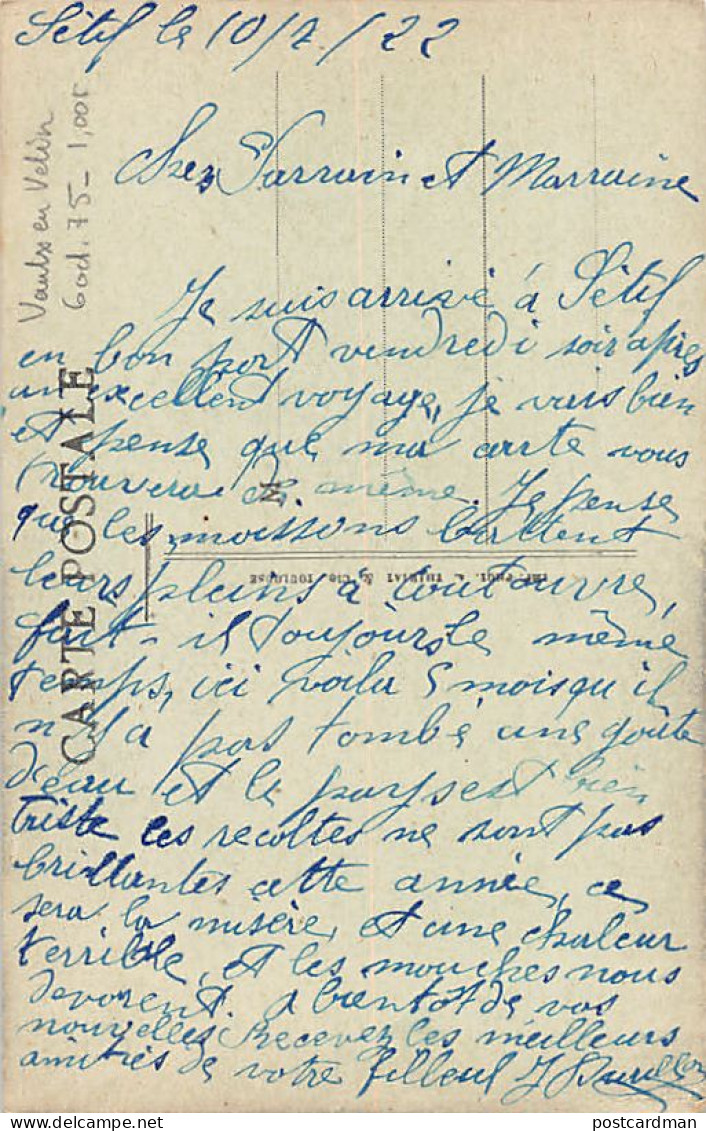 Sétif le 10/7/22
Cher Parrain et Marraine
Je suis arrivé à Sétif
en bon port vendredi soir apres
un excellent voyage, je vais bien
et pense que ma carte vous
trouvera de même. Je pense
que les moissons battent
leurs pleins à
fait-il toujours le même
temps, ici voila 5 mois qu'il
n'y a pas tombé une goûte
d'eau et le pays est bien
triste les recoltes ne sont pas
brillantes cette année, ce
sera la misère, et une chaleur
terrible, et les mouches nous
devorent. a bientôt de vos
nouvelles, recevez les meilleurs
amitiés de votre filleul J
Vaulx en Velin
6 od. 75 - 1,00
CARTE POSTALE
M
& Cie TOULOUSE
postcardman